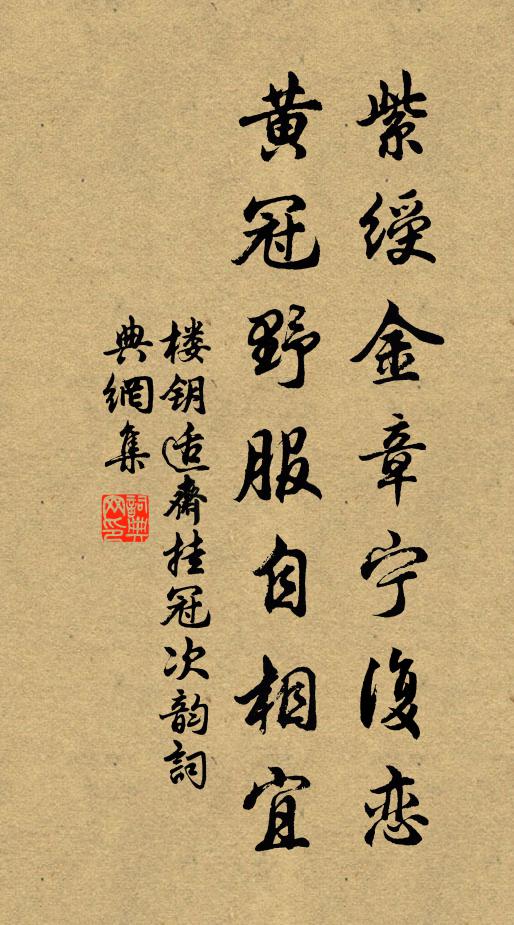 紫綬金章宁復恋
黄冠野服自相宜
楼钥适齋挂冠次韵詞
典網集
詞典网印